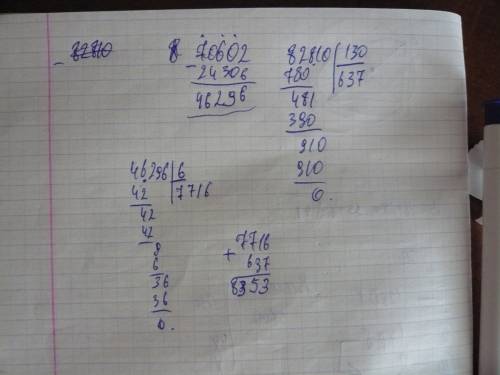 - 82810
8 - 70602
24306
46296
82810 | 130
780 | 637
481
390
910
910
0.
46296 | 6
42 | 7716
42
42
9
6
36
36
0.
7716
+ 637
8353